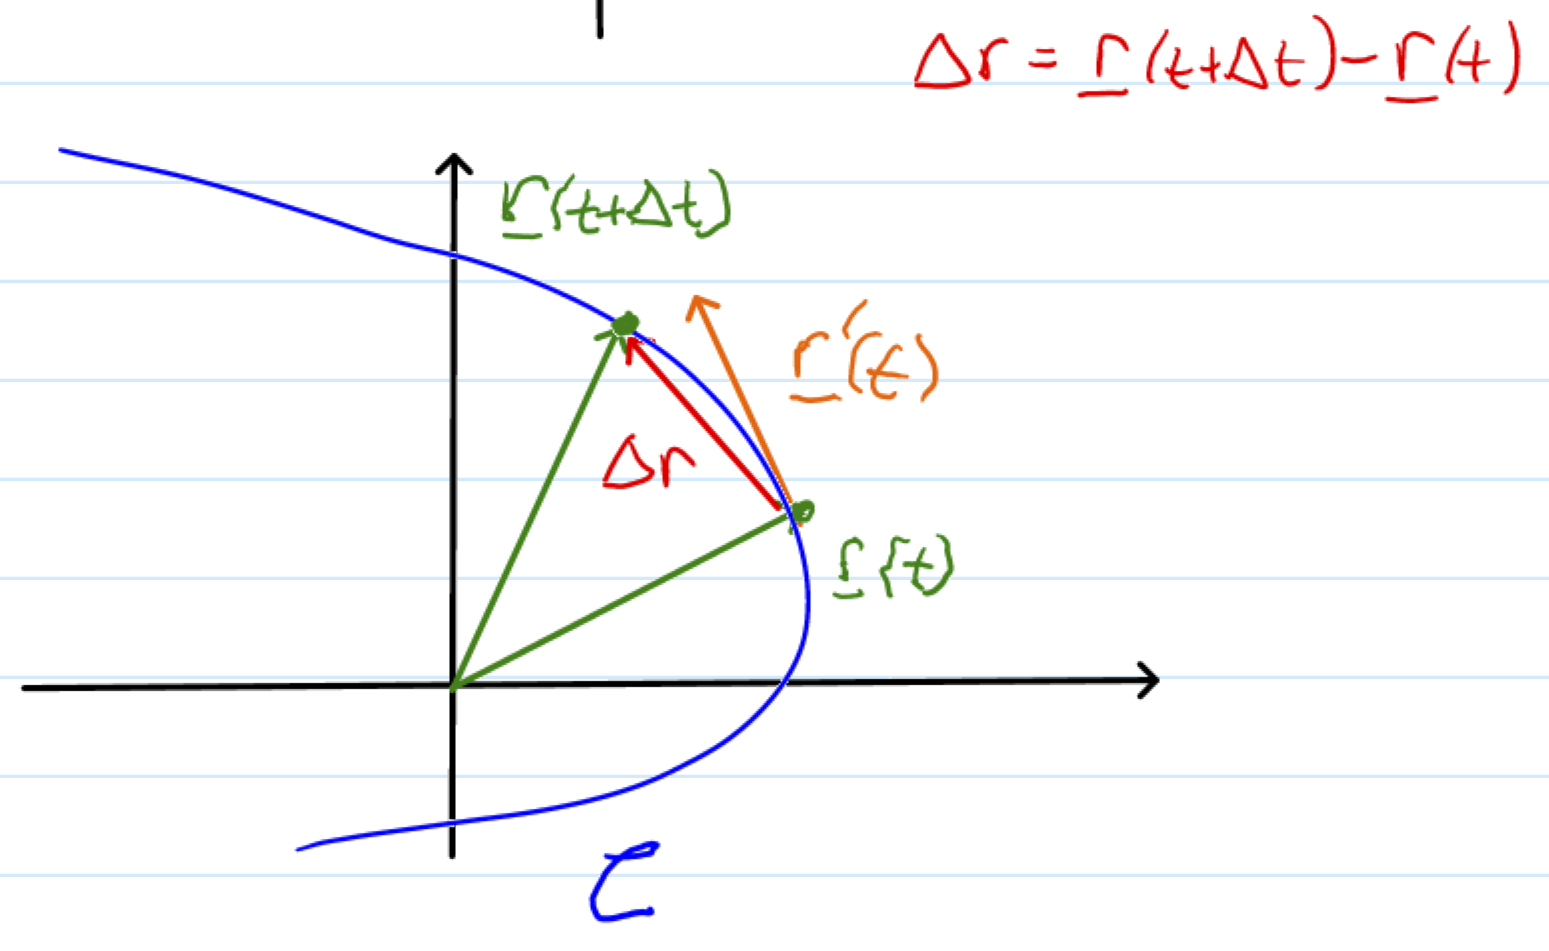 Δr = r(t+Δt)-r(t)
r(t+Δt)
r'(t)
Δr
r(t)
C